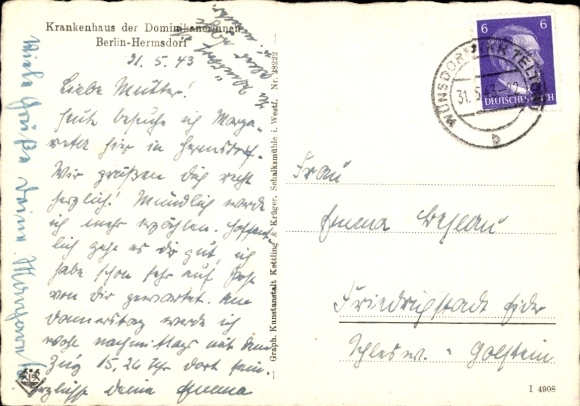 Krankenhaus der Dominikanerinnen
Berlin-Hermsdorf
21. 5. 43
Liebe Mutter!
Heute besuche ich Marga-
reta hier in Hermsdorf.
Wir grüßen dich recht
herzlich! Mündlich werde
ich mehr erzählen. Hoffent-
lich geht es dir gut, ich
habe schon sehr auf Post
von dir gewartet. Am
Donnerstag werde ich
wohl nachmittags mit dem
Zug 15.26 Uhr dort sein.
Herzlichst Deine Emma
Viele Grüße deine
Graph. Kunstanstalt Kettling & Krüger, Schalksmühle i. Westf. Nr. 48222
6 6
DEUTSCHES REICH
WÜNSDORF (KR TELTOW)
31.5.43
b
Frau
Emma
Friedrichstadt Eider
Schlesw. - Holstein
I 4908